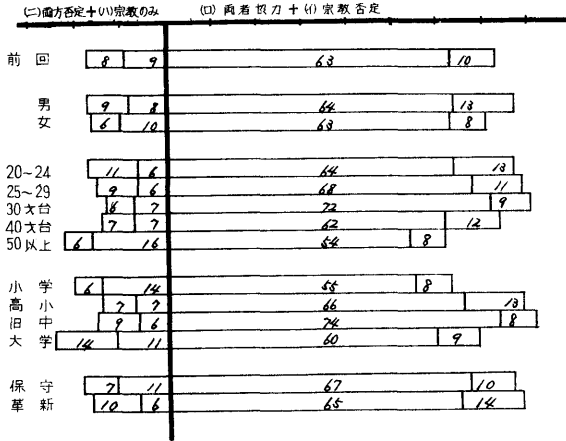 (ニ)両方否定+(ハ)宗教のみ (ロ)両者協力+(イ)宗教否定
前回 8 9 63 10
男 9 8 64 13
女 6 10 63 8
20~24 11 6 64 13
25~29 9 6 68 11
30才台 6 7 72 9
40才台 7 7 62 12
50以上 6 16 54 8
小学 6 14 55 8
高小 7 7 66 13
旧中 9 6 74 8
大学 14 11 60 9
保守 7 11 67 10
革新 10 6 65 14